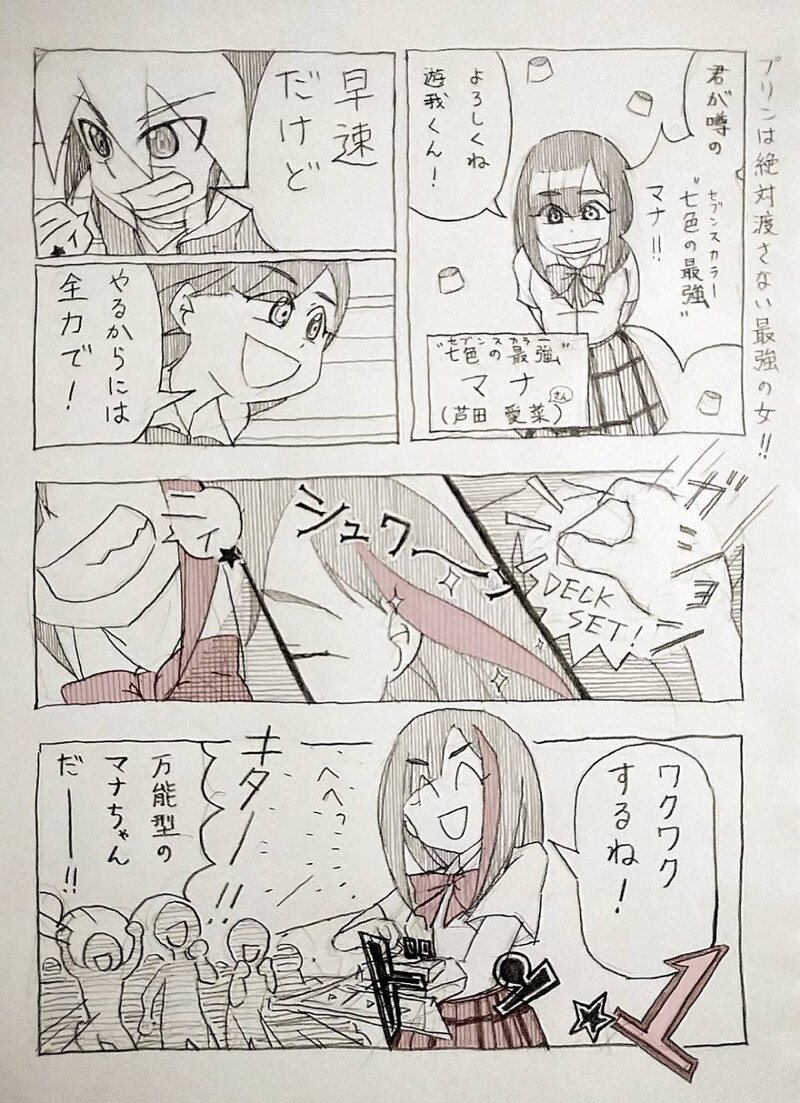 プリンは絶対渡さない最強の女!!
君が噂の
セブンスカラー
"七色の最強"
マナ!!
よろしくね
遊我くん!
セブンスカラー
"七色の最強"
マナ
(芦田愛菜)さん
早速
だけど
ニィ
やるからには
全力で!
ガシ
ョン
DECK
SET!
シュワ〜ン
ニィ
ワクワク
するね!
へへっ
キター!!
万能型の
マナちゃん
だー!!
ドン
1